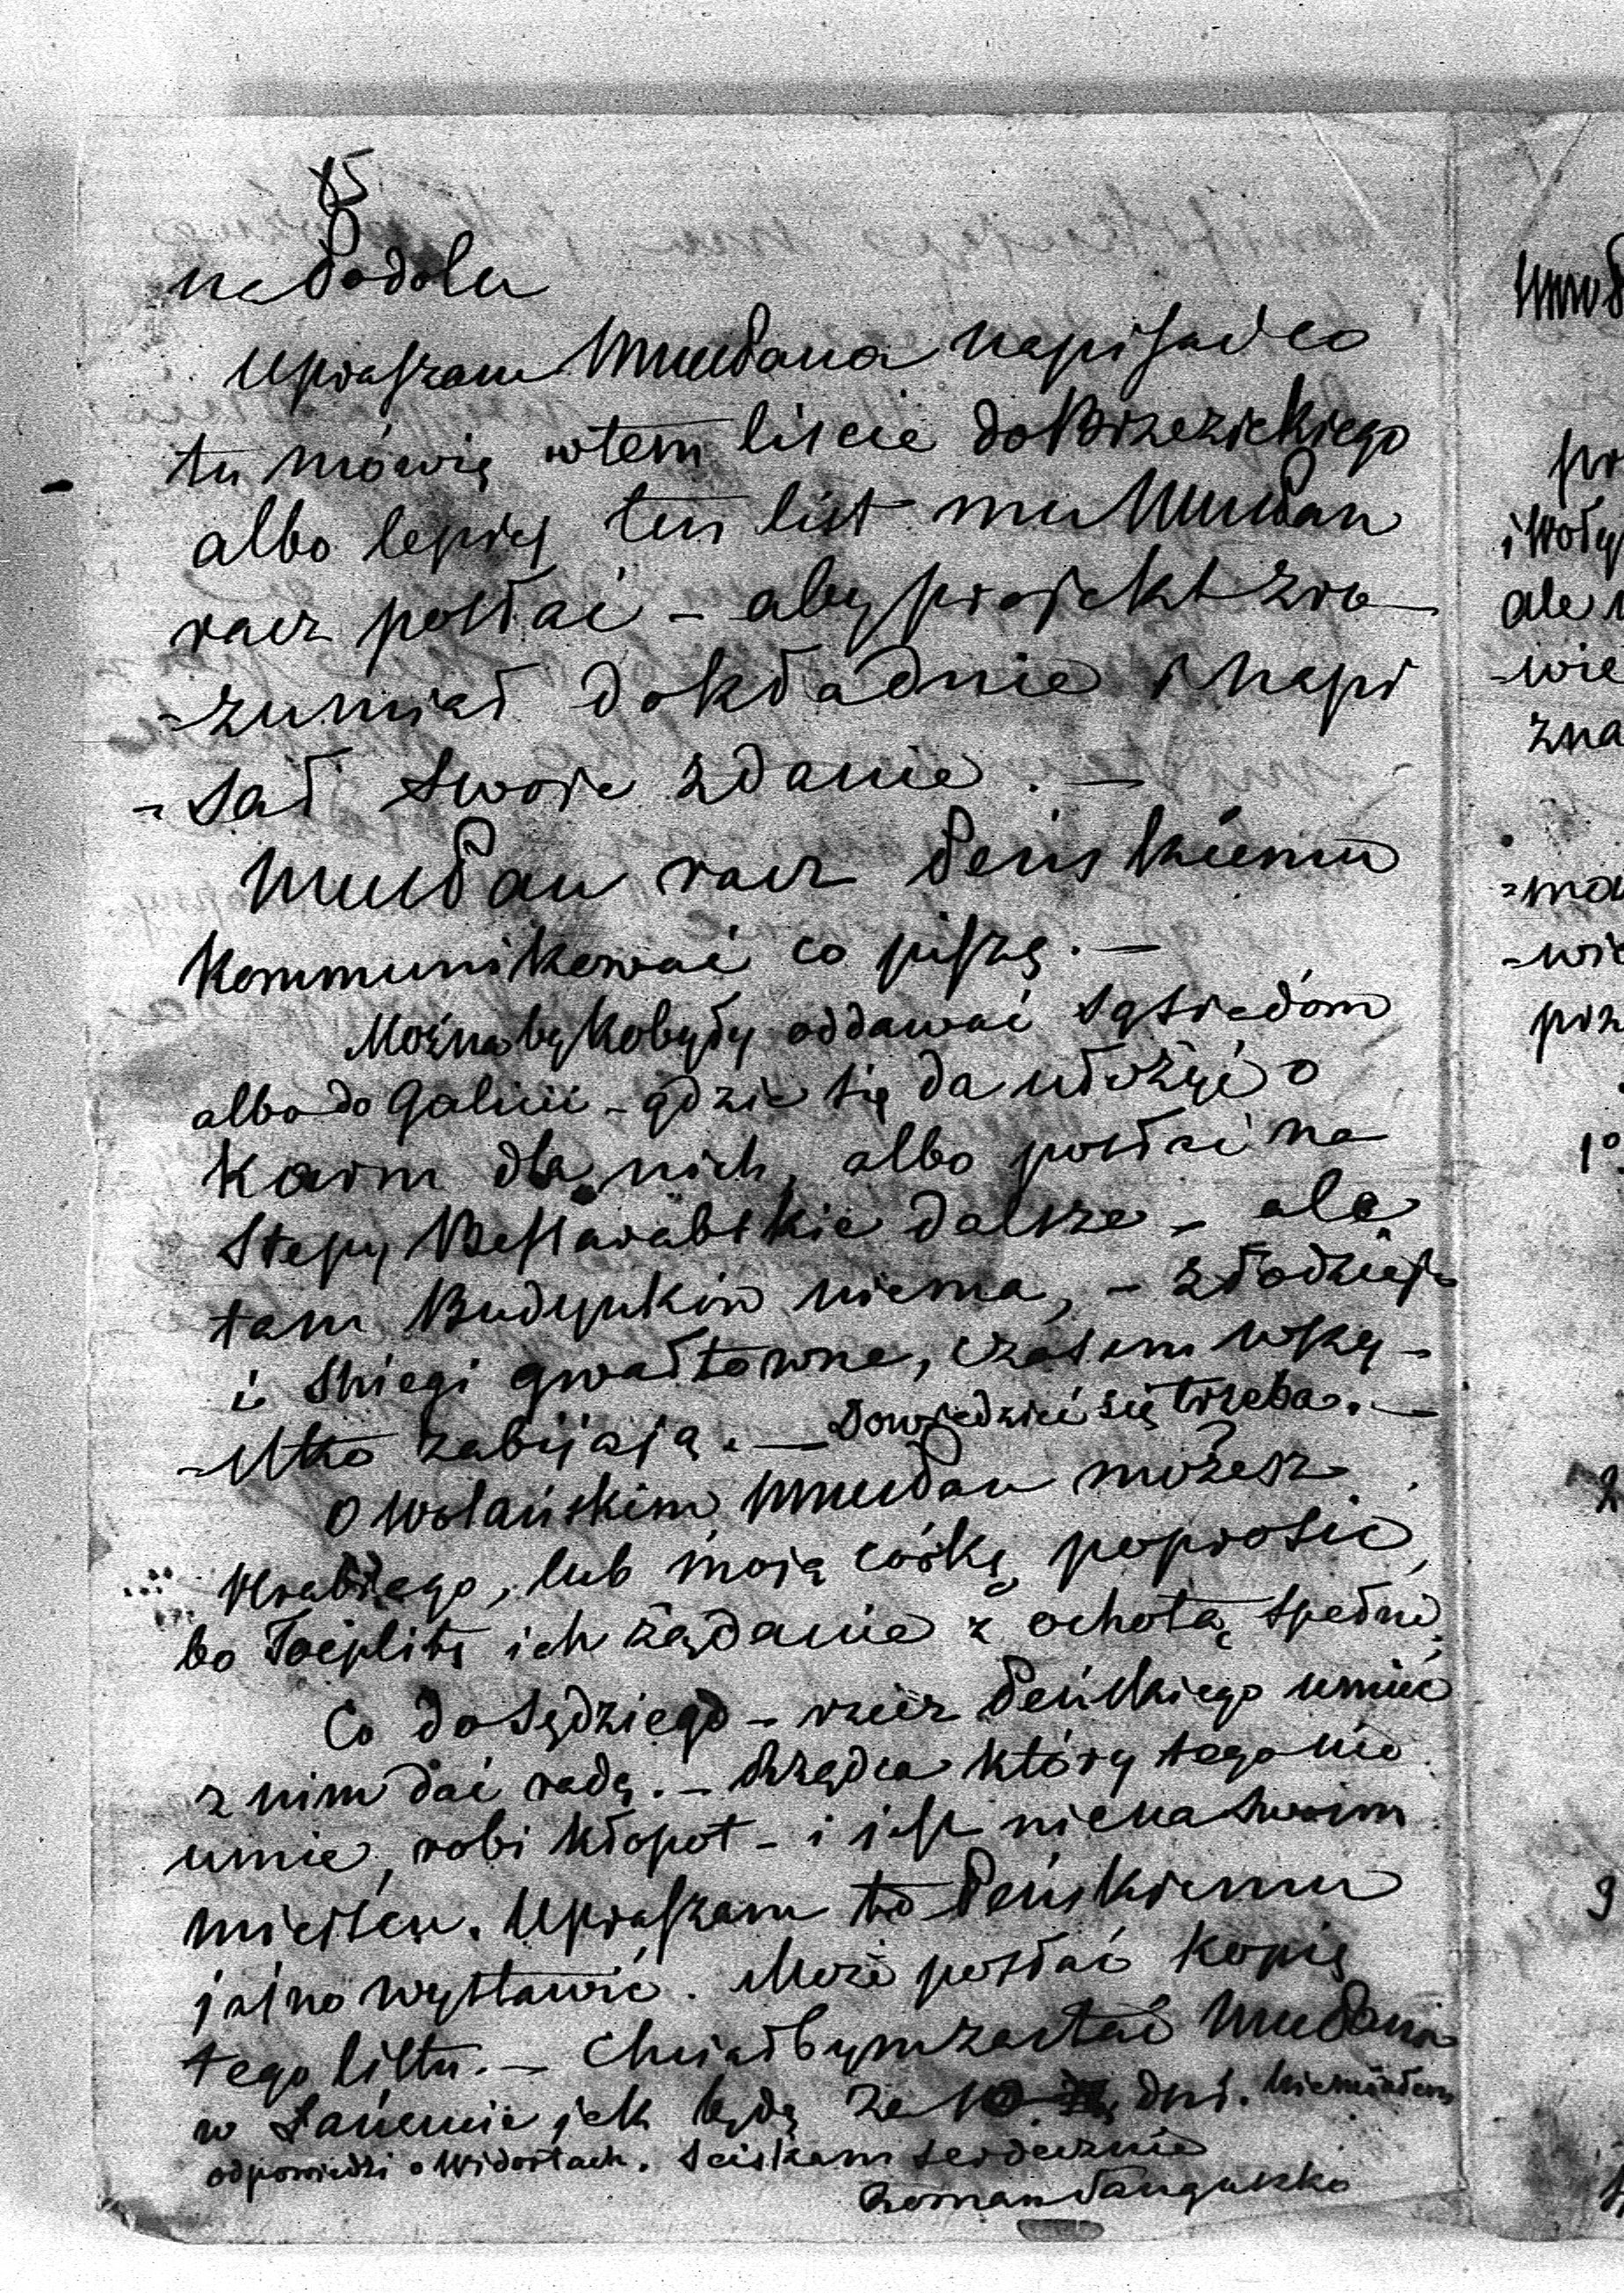 85
na Podolu
Upraszam WMuPana napisać co
tu mówię w tem liście do Brzezickiego
albo lepiej ten list mu WMuPan
racz posłać – aby projekt zro
-zumiał dokładnie i napi
-sał swoje zdanie. –
WMuPan racz Peńskiemu
Kommunikować co piszę. –
Możnaby Kobyły oddawać sąsiadom
albo do Galicii – gdzie się da ułożyć o
Karm dla nich, albo posłać na
Stepy Bessarabskie dalsze – ale
tam Budynków niema, – złodzieje
i śniegi gwałtowne, czasem wszy-
-stko zabijają. – Dowiedzieć się trzeba. –
O Wolańskim WMuPan możesz
Hrabiego, lub moją córkę poprosić,
bo Toeplitz ich żądanie z ochotą spełni.
Co do Sędziego – rzecz Peńskiego umieć
z nim dać radę. – Rządca który tego nie
umie, robi kłopot – i jest nie na swoim
miejscu. Upraszam to Peńskiemu
jasno wystawić. Może posłać kopię
tego listu. – Chciałbym zastać WMuPana
w jak będę za dni. Nie miałem
odpowiedzi o Widortach. Sciskam serdecznie
Roman Sanguszko